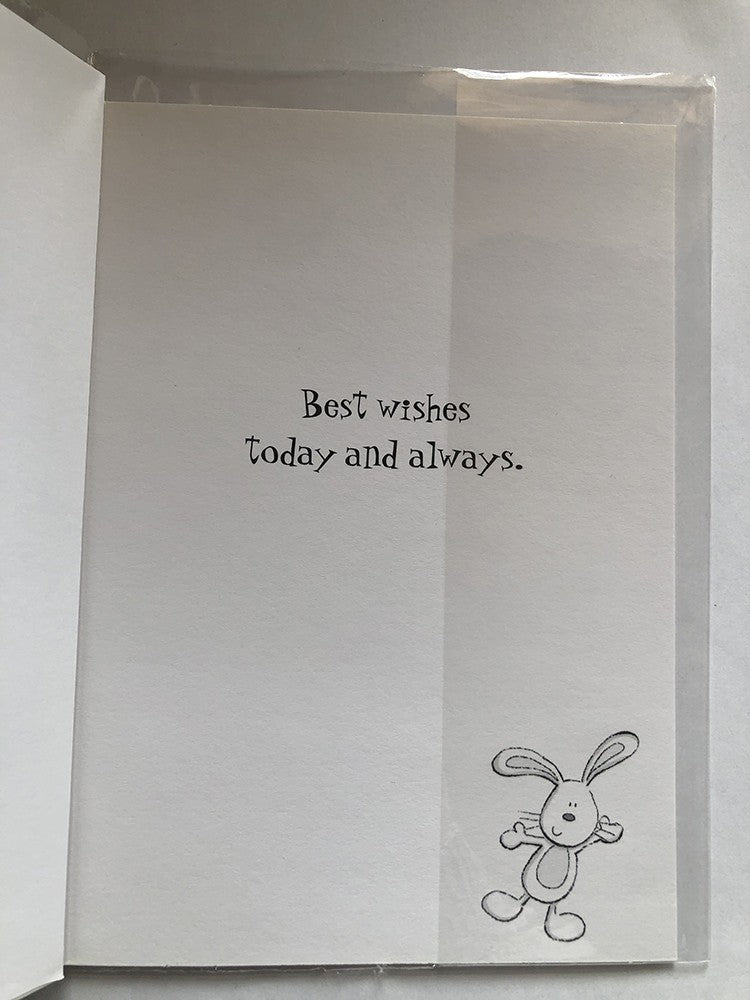 Best wishes
today and always.